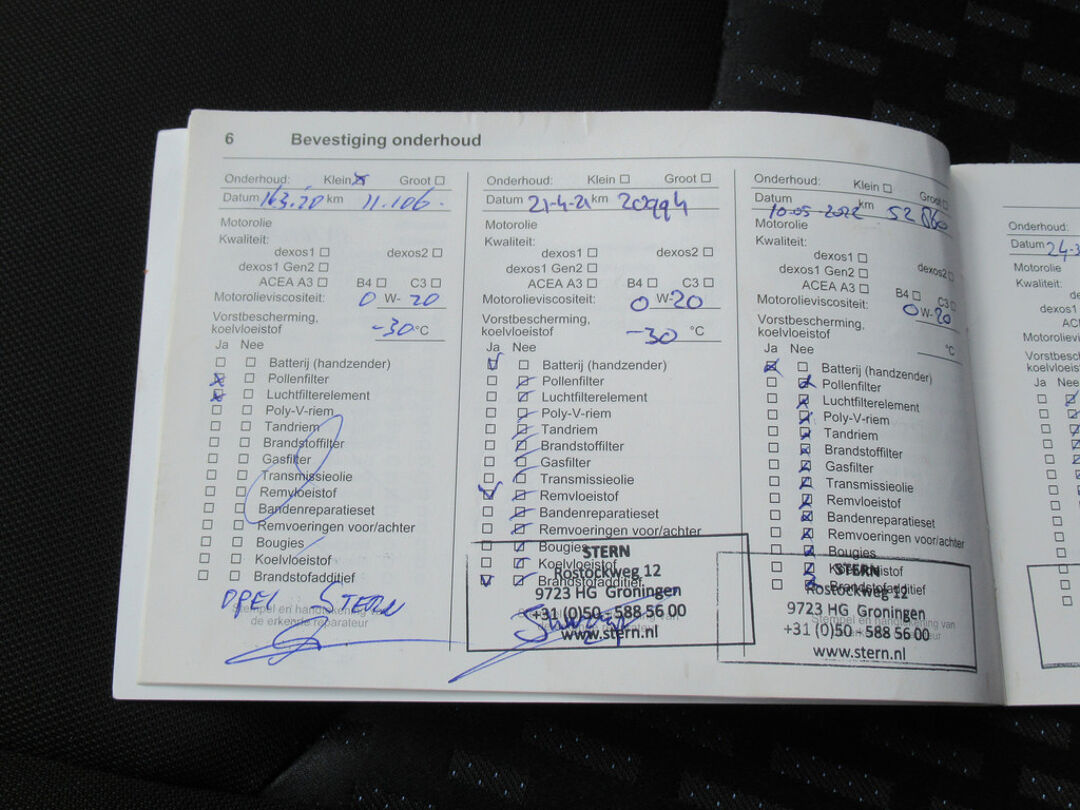 6 Bevestiging onderhoud
Onderhoud: Klein Groot
Datum 16.3.20 km 11.106.
Motorolie
Kwaliteit:
dexos1 dexos2
dexos1 Gen2
ACEA A3 B4 C3
Motorolieviscositeit: 0 W- 20
Vorstbescherming,
koelvloeistof -30 °C
Ja Nee
Batterij (handzender)
Pollenfilter
Luchtfilterelement
Poly-V-riem
Tandriem
Brandstoffilter
Gasfilter
Transmissieolie
Remvloeistof
Bandenreparatieset
Remvoeringen voor/achter
Bougies
Koelvloeistof
Brandstofadditief
OPEL STERN
Stempel en handtekening van
de erkende reparateur
Onderhoud: Klein Groot
Datum 21-4-21 km 20994
Motorolie
Kwaliteit:
dexos1 dexos2
dexos1 Gen2
ACEA A3 B4 C3
Motorolieviscositeit: 0 W- 20
Vorstbescherming,
koelvloeistof -30 °C
Ja Nee
Batterij (handzender)
Pollenfilter
Luchtfilterelement
Poly-V-riem
Tandriem
Brandstoffilter
Gasfilter
Transmissieolie
Remvloeistof
Bandenreparatieset
Remvoeringen voor/achter
Bougies
Koelvloeistof
Brandstofadditief
STERN
Rostockweg 12
9723 HG Groningen
+31 (0)50 - 588 56 00
www.stern.nl
Onderhoud: Klein Groot
Datum 10-05-2022 km 52860
Motorolie
Kwaliteit:
dexos1 dexos2
dexos1 Gen2
ACEA A3 B4 C3
Motorolieviscositeit: 0 W- 20
Vorstbescherming,
koelvloeistof °C
Ja Nee
Batterij (handzender)
Pollenfilter
Luchtfilterelement
Poly-V-riem
Tandriem
Brandstoffilter
Gasfilter
Transmissieolie
Remvloeistof
Bandenreparatieset
Remvoeringen voor/achter
Bougies
Koelvloeistof
Brandstofadditief
STERN
Rostockweg 12
9723 HG Groningen
+31 (0)50 - 588 56 00
www.stern.nl
Onderhoud:
Datum 24-3
Motorolie
Kwaliteit:
Ja Nee